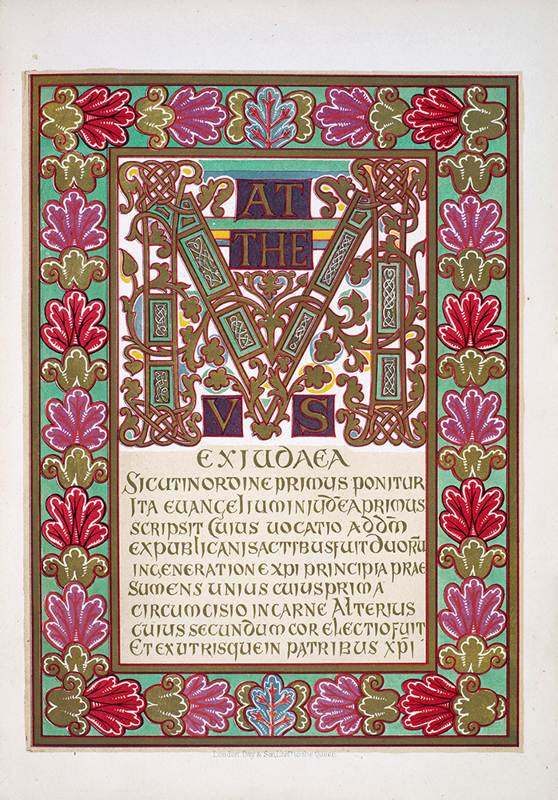 M AT
THE
VS
EXIUDAEA
SICUTINORDINE PRIMUS PONITUR
ITA EUANGELIUMINIUDEA PRIMUS
SCRIPSIT CUIUS UOCATIO ADDM̄
EXPUBLICANISACTIBUSFUIT DUORŪ
INGENERATIONE XPI PRINCIPIA PRAE
SUMENS UNIUS CUIUSPRIMA
CIRCUMCISIO INCARNE ALTERIUS
CUIUS SECUNDUM COR ELECTIOFUIT
ETEXUTRISQUEIN PATRIBUS XP̄I
London, Day & Son, Lith.rs to the Queen.